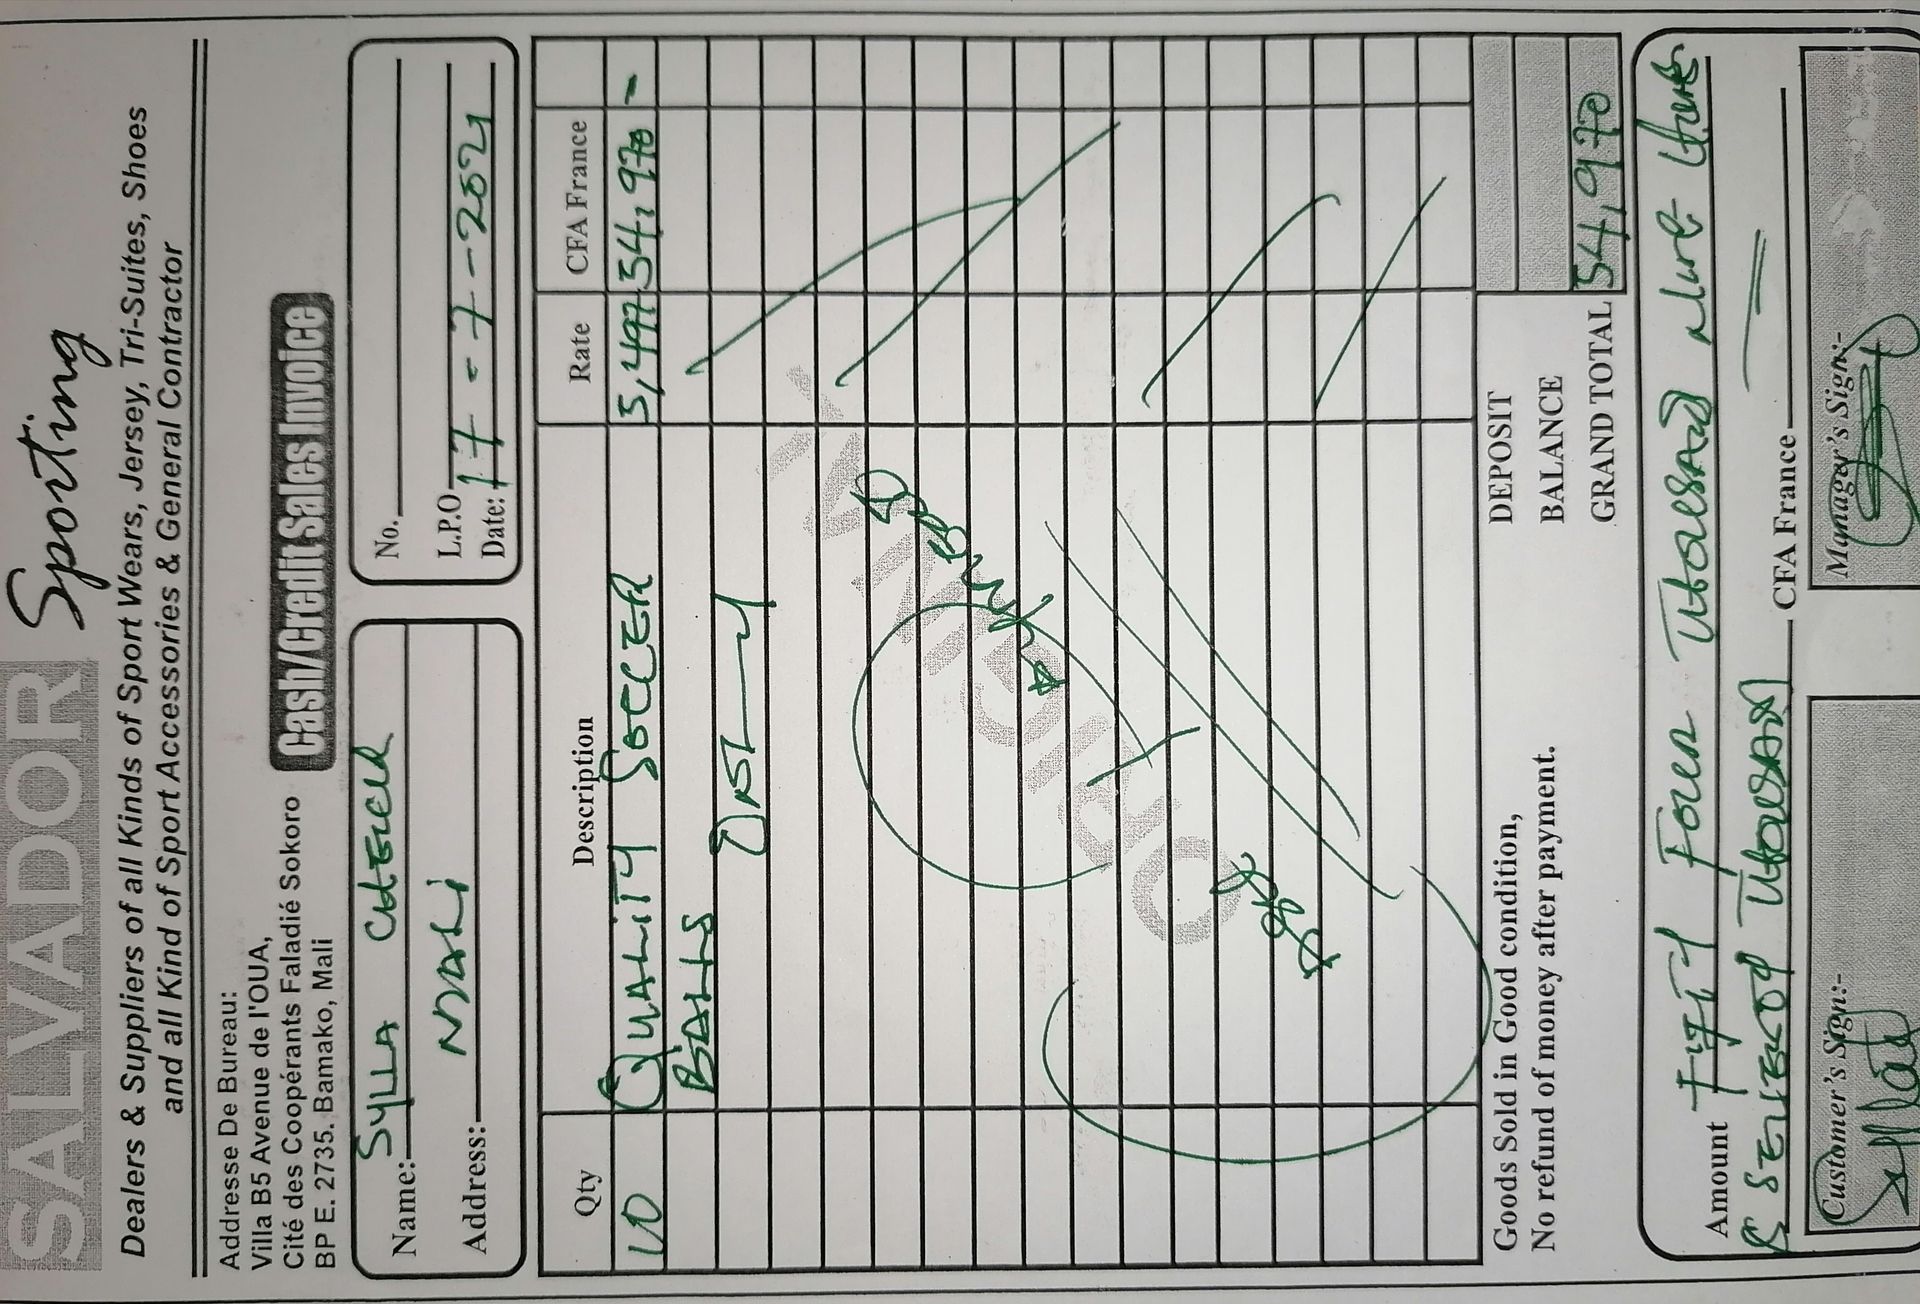 SALVADOR Sporting
Dealers & Suppliers of all Kinds of Sport Wears, Jersey, Tri-Suites, Shoes
and all Kind of Sport Accessories & General Contractor
Addresse De Bureau:
Villa B5 Avenue de l'OUA,
Cité des Coopérants Faladié Sokoro
BP E. 2735. Bamako, Mali
Cash/Credit Sales Invoice
Name: SYLLA CHEICK
Address: MALI
No.
L.P.O
Date: 17-7-2021
Qty Description Rate CFA France
10 QUALITY SOCCER 5,497 54,970 -
BALLS
ONLY
ORIGINAL
DEPOSIT
BALANCE
GRAND TOTAL 54,970
Goods Sold in Good condition,
No refund of money after payment.
Amount Fifty Four Thousand Nine
CFA France
Customer's Sign:-
Manager's Sign:-